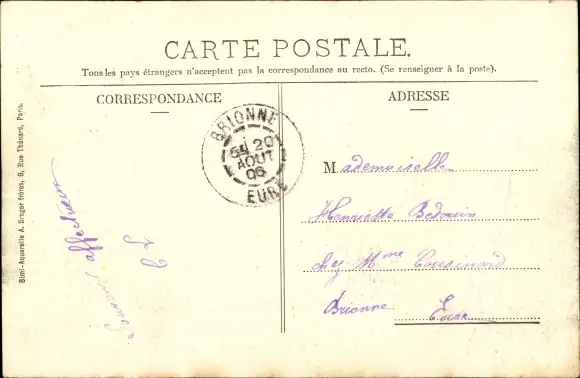 CARTE POSTALE.
Tous les pays étrangers n'acceptent pas la correspondance au recto. (Se renseigner à la poste).
CORRESPONDANCE
ADRESSE
BRIONNE
5E 20
AOUT
06
EURE
Mademoiselle
Henriette Bedouin
chez Mme Cousinard
Brionne Eure
affectueux
Simi-Aquarelle A. Breger frères, 9, Rue Thénard, Paris.